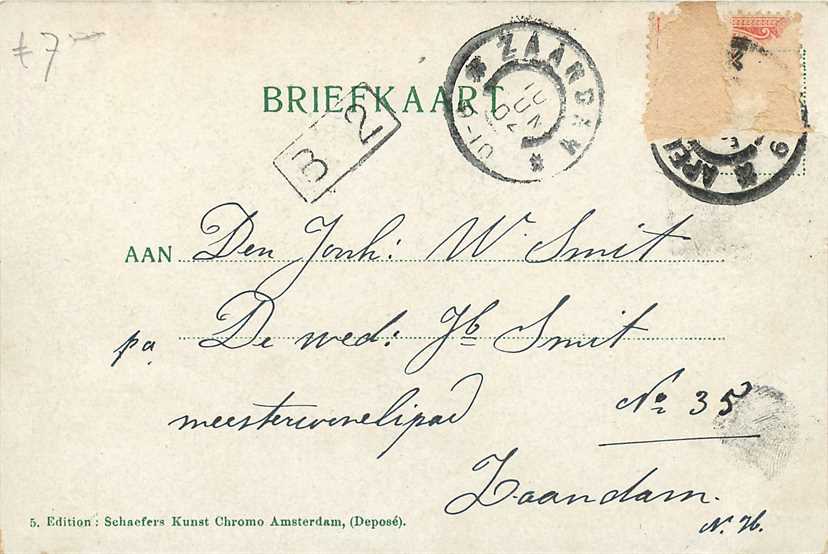 f 7-
BRIEFKAART
B 2
* ZAANDAM *
10 JUN 02
AAN Den Jonh: W. Smit
pa De wed: Jb Smit
meesterwoelipad No 35
Zaandam.
N. H.
5. Edition: Schaefers Kunst Chromo Amsterdam, (Deposé).